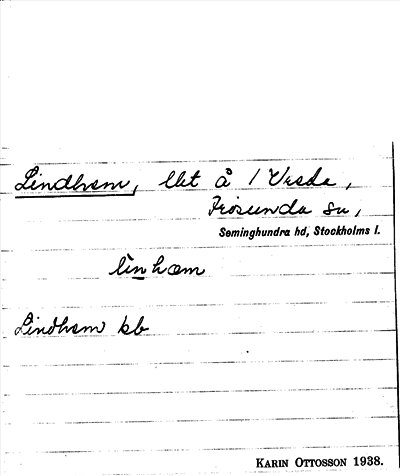 Lindhem, lht å / Vreda,
Frösunda sn,
Seminghundra hd, Stockholms l.
linhæm
Lindhem kb
KARIN OTTOSSON 1938.